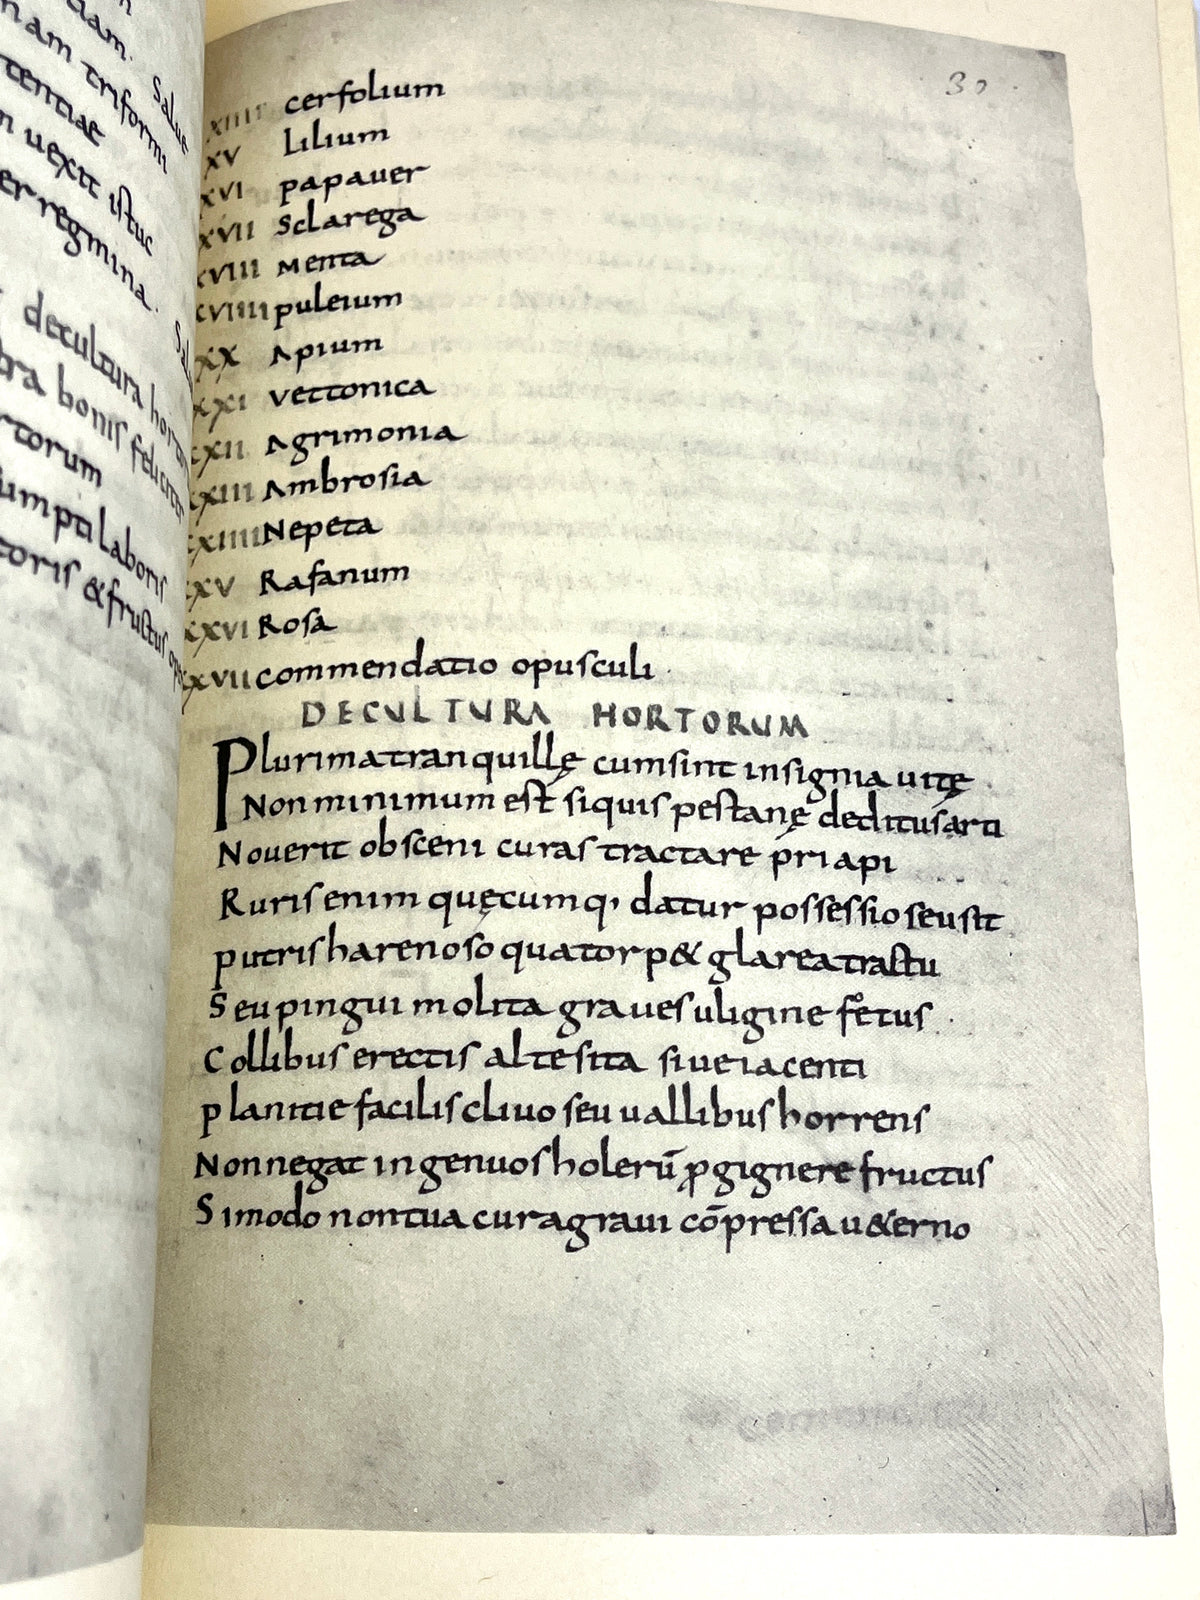 tiam. Salue
nam triformi
tentiae
uexit istuc
er regmina.
decultura hortor
bra bonis feliciter
rtorum
umpti laboris
toris & fructus
30
XIIII cerfolium
XV Lilium
XVI papauer
XVII Sclarega
XVIII Menta
XVIIII puleium
XX Apium
XXI vettonica
XXII Agrimonia
XXIII Ambrosia
XXIIII Nepeta
XXV Rafanum
XXVI Rosa
XXVII commendatio opusculi.
DECULTURA HORTORUM
Plurima tranquillę cum sint insignia uitę
Non minimum est siquis pestanę deditus arti
Nouerit obsceni curas tractare priapi
Ruris enim quęcumq, datur possessio seu sit
putris harenoso qua torp& glarea tractu
Seu pingui molita graues uligine foetus.
Collibus erectis alte sita siue iacenti
planitie facilis cliuo seu uallibus horrens
Non negat ingenuos holerū ꝓgignere fructus
Si modo non tua cura graui cōpressa u&erno